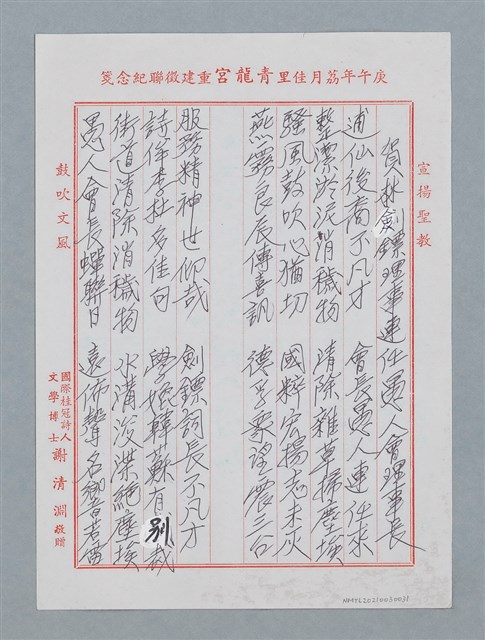 庚午年荔月佳里青龍宮重建徵聯紀念箋
宣揚聖教
賀林劍鏢理事連任愚人會理事長
逋仙後裔不凡才 會長愚人連任來
整潔淤泥消穢物 清除雜草掃塵埃
騷風鼓吹心猶切 國粹宏揚志未灰
燕霧良辰傳喜訊 德孚眾望震三台
服務精神世仰哉 劍鏢詞長不凡才
詩侔李杜多佳句 學媲韓蘇有別裁
街道清除消穢物 水溝浚渫絕塵埃
愚人會長蟬聯日 遠佈聲名響若雷
鼓吹文風
國際桂冠詩人
文學博士 謝清淵敬贈
HMTL20210030031